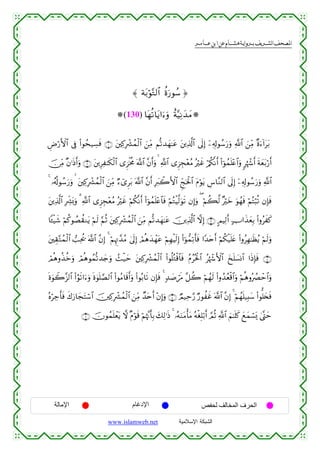 المصحف الشريف برواية هشام عن ابن عامر
﴿ سُورَةُ التَّوْبَة ﴾
*مَدَنِيَّةٌ وَءَايَاتُهَا (130)*
بَرَآءَةٌ مِّنَ ٱللَّهِ وَرَسُولِهِۦٓ إِلَى ٱلَّذِينَ عَٰهَدتُّم مِّنَ ٱلْمُشْرِكِينَ ۝ فَسِيحُوا۟ فِى ٱلْأَرْضِ
أَرْبَعَةَ أَشْهُرٍ وَٱعْلَمُوٓا۟ أَنَّكُمْ غَيْرُ مُعْجِزِى ٱللَّهِ ۙ وَأَنَّ ٱللَّهَ مُخْزِى ٱلْكَٰفِرِينَ ۝ وَأَذَٰنٌ مِّنَ
ٱللَّهِ وَرَسُولِهِۦٓ إِلَى ٱلنَّاسِ يَوْمَ ٱلْحَجِّ ٱلْأَكْبَرِ أَنَّ ٱللَّهَ بَرِىٓءٌ مِّنَ ٱلْمُشْرِكِينَ ۙ وَرَسُولُهُۥ ۚ
فَإِن تُبْتُمْ فَهُوَ خَيْرٌ لَّكُمْ ۖ وَإِن تَوَلَّيْتُمْ فَٱعْلَمُوٓا۟ أَنَّكُمْ غَيْرُ مُعْجِزِى ٱللَّهِ ۗ وَبَشِّرِ ٱلَّذِينَ
كَفَرُوا۟ بِعَذَابٍ أَلِيمٍ ۝ إِلَّا ٱلَّذِينَ عَٰهَدتُّم مِّنَ ٱلْمُشْرِكِينَ ثُمَّ لَمْ يَنقُصُوكُمْ شَيْـًٔا
وَلَمْ يُظَٰهِرُوا۟ عَلَيْكُمْ أَحَدًا فَأَتِمُّوٓا۟ إِلَيْهِمْ عَهْدَهُمْ إِلَىٰ مُدَّتِهِمْ ۚ إِنَّ ٱللَّهَ يُحِبُّ ٱلْمُتَّقِينَ
۝ فَإِذَا ٱنسَلَخَ ٱلْأَشْهُرُ ٱلْحُرُمُ فَٱقْتُلُوا۟ ٱلْمُشْرِكِينَ حَيْثُ وَجَدتُّمُوهُمْ وَخُذُوهُمْ
وَٱحْصُرُوهُمْ وَٱقْعُدُوا۟ لَهُمْ كُلَّ مَرْصَدٍ ۚ فَإِن تَابُوا۟ وَأَقَامُوا۟ ٱلصَّلَوٰةَ وَءَاتَوُا۟ ٱلزَّكَوٰةَ
فَخَلُّوا۟ سَبِيلَهُمْ ۚ إِنَّ ٱللَّهَ غَفُورٌ رَّحِيمٌ ۝ وَإِنْ أَحَدٌ مِّنَ ٱلْمُشْرِكِينَ ٱسْتَجَارَكَ فَأَجِرْهُ
حَتَّىٰ يَسْمَعَ كَلَٰمَ ٱللَّهِ ثُمَّ أَبْلِغْهُ مَأْمَنَهُۥ ۚ ذَٰلِكَ بِأَنَّهُمْ قَوْمٌ لَّا يَعْلَمُونَ ۝
الحرف المخالف لحفص الإدغام الإمالة
الشبكة الإسلامية www.islamweb.net